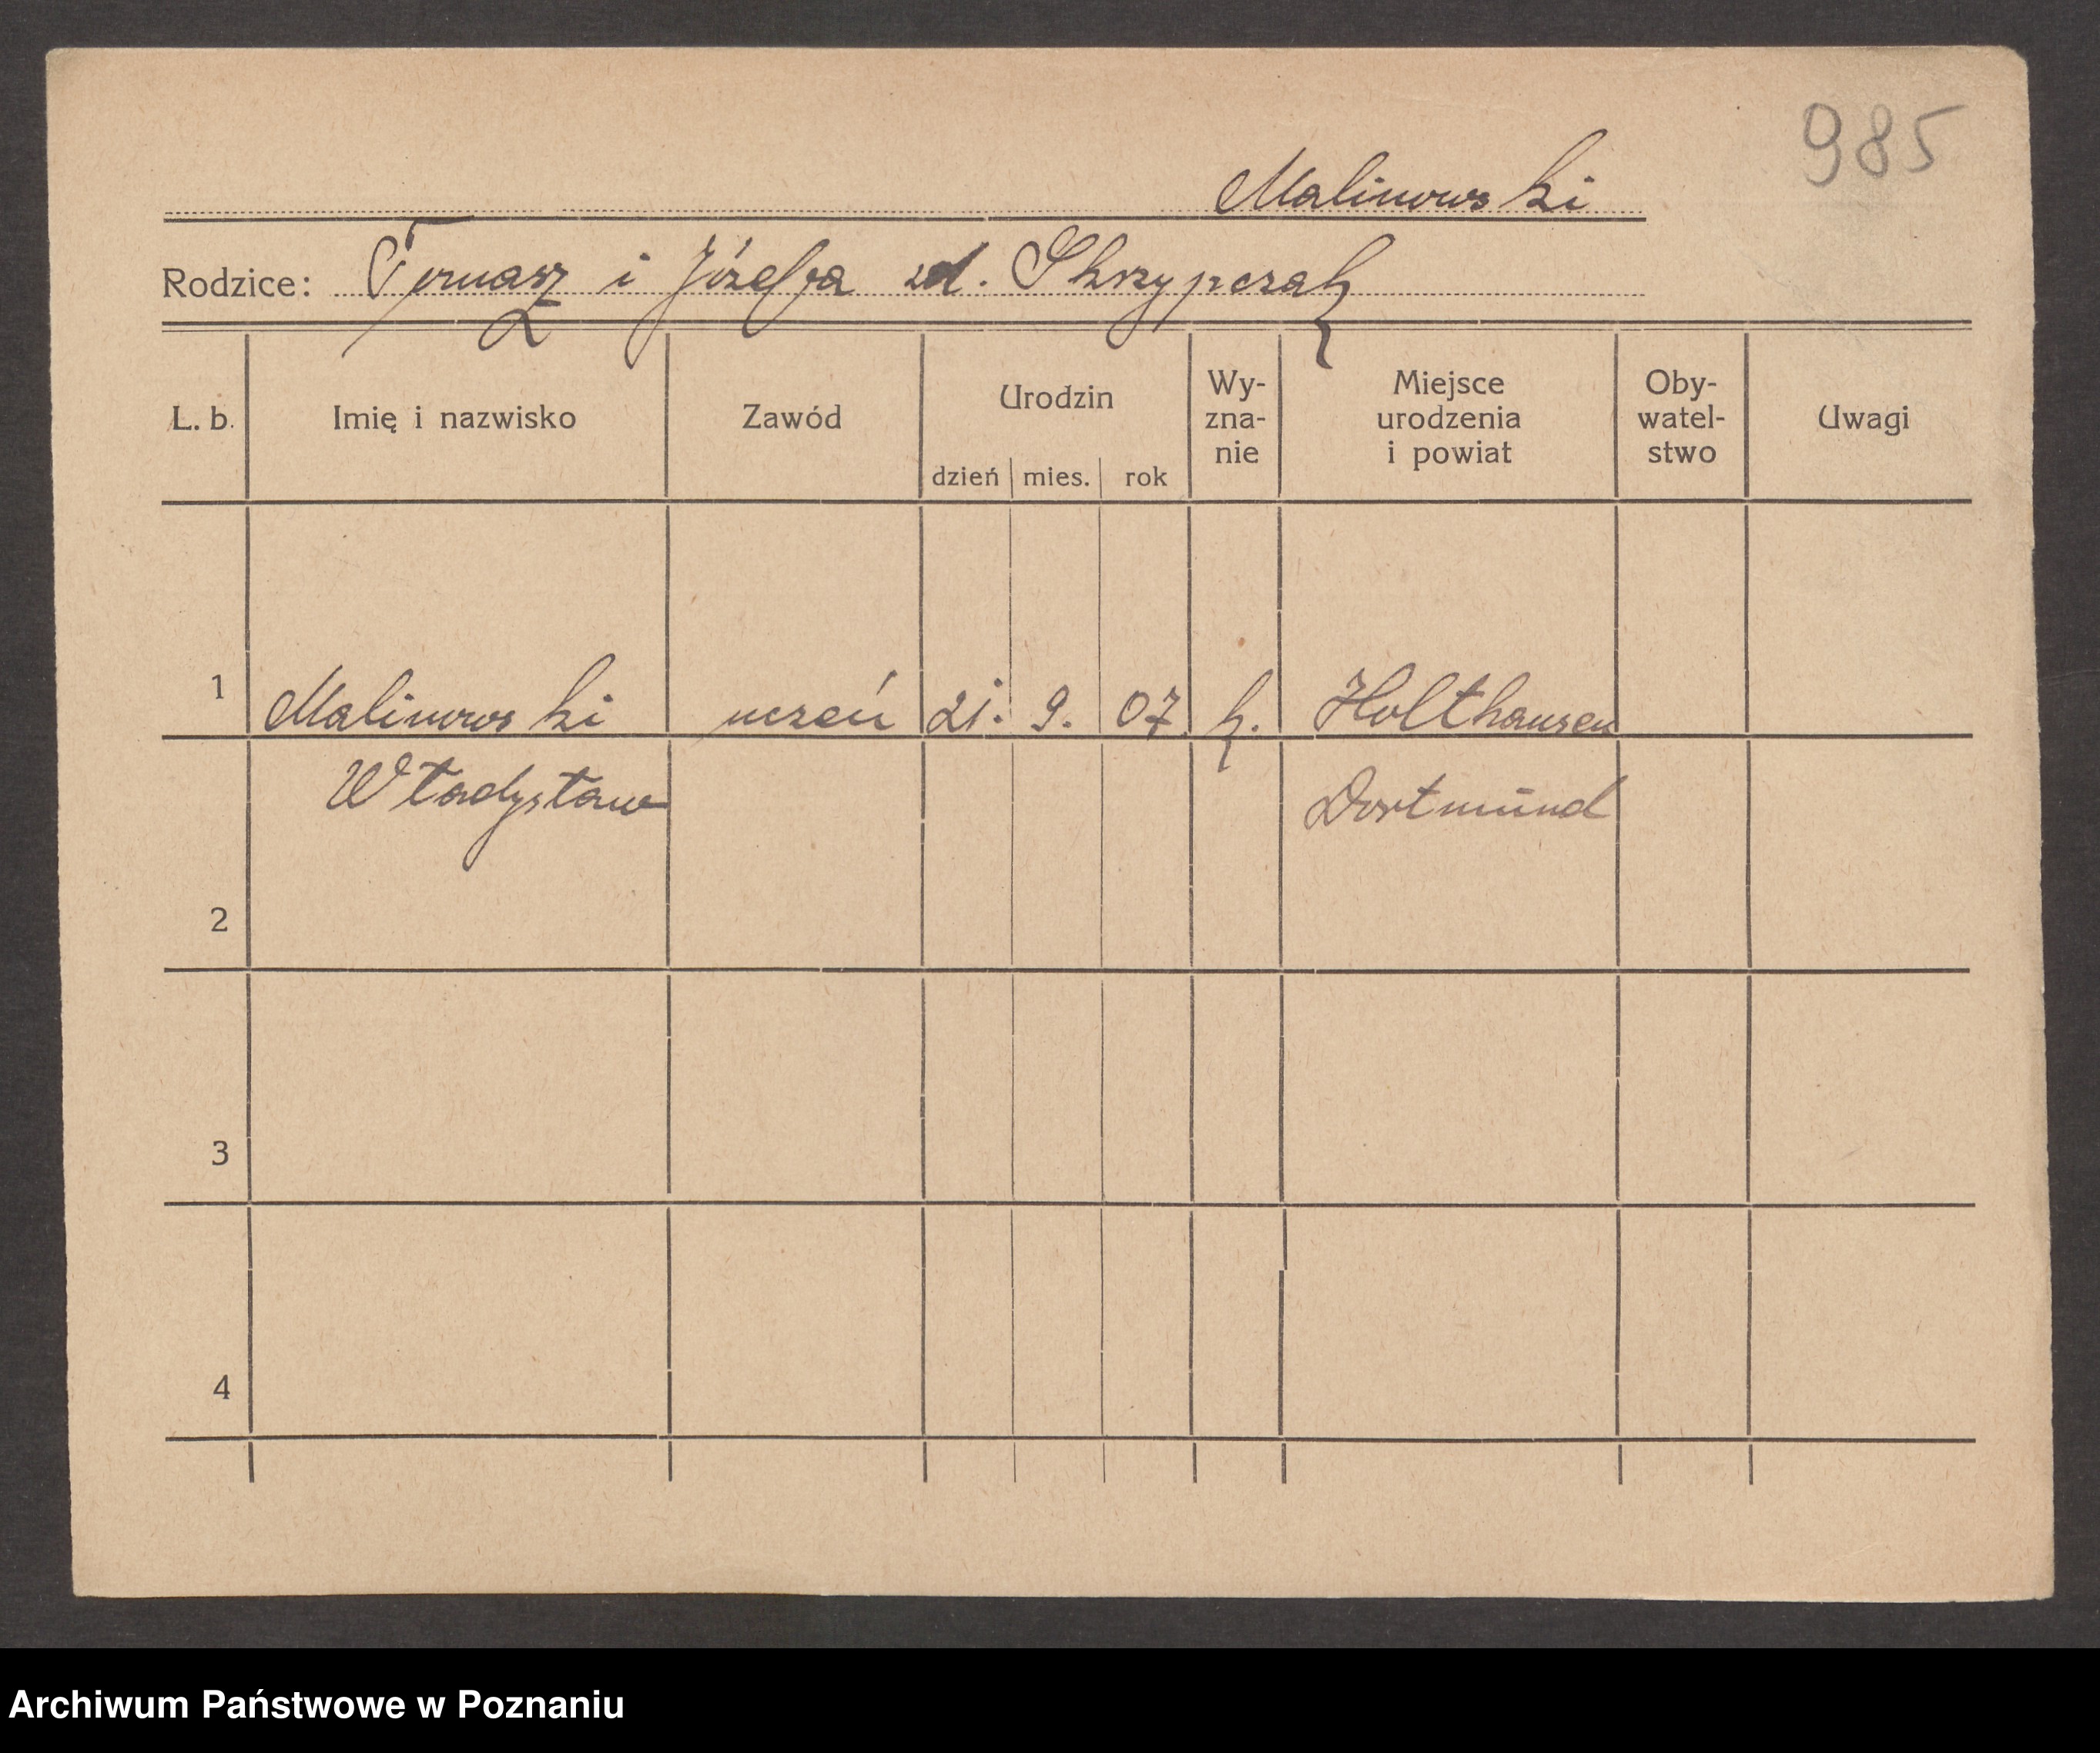 985
Malinowski
Rodzice: Tomasz i Józefa zd. Skrzypczak
L. b. Imię i nazwisko Zawód Urodzin dzień mies. rok Wy-zna-nie Miejsce urodzenia i powiat Oby-watel-stwo Uwagi
1 Malinowski uczeń 21. 9. 07. k. Holthausen
Władysław Dortmund
2
3
4
Archiwum Państwowe w Poznaniu